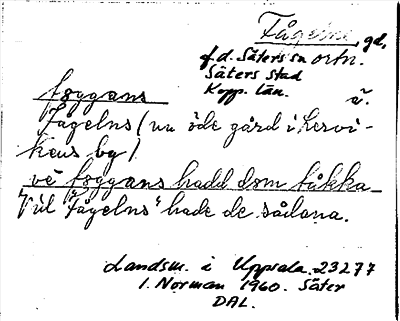 Fågelns, gd,
f.d. Säters sn ortn.
Säters stad
Kopp. län.
föggans
Fågelns (nu öde gård i Lervi-
kens by)
ve föggans hadd dom
"Vid Fågelns" hade de sådana.
Landsm. i Uppsala 23277
I. Norman 1960. Säter
DAL.